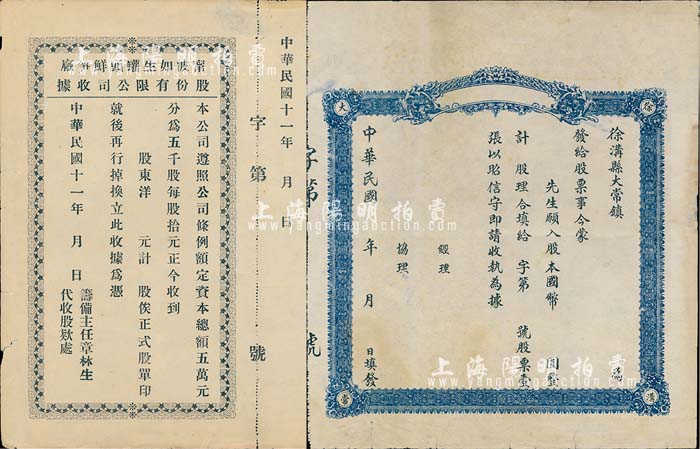 甯波如生罐頭鮮笋廠
股份有限公司收據
本公司遵照公司條例額定資本總額五萬元
分爲五千股每股拾元正今收到
股東洋　元計　股俟正式股單印
就後再行掉換立此收據爲憑
中華民國十一年　月　日
籌備主任章林生
代收股欵處
中華民國十一年　月　日
字第　號
字第　號
徐溝縣大常鎮
發給股票事今蒙
先生願入股本國幣　圓整
計　股理合填給　字第　號股票壹
張以昭信守即請收執為據
經理
協理
中華民國　年　月　日填發
徐
溝
大
常
上海陽明拍賣
www.yangmingauction.com
上海陽明拍賣
www.yangmingauction.com
上海陽明拍賣
www.yangmingauction.com
上海陽明拍賣
www.yangmingauction.com